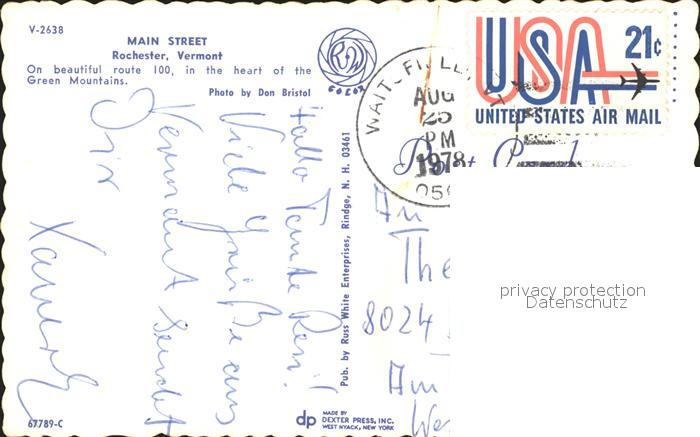 V-2638
MAIN STREET
Rochester, Vermont
On beautiful route 100, in the heart of the
Green Mountains.
Photo by Don Bristol
COLOR
USA 21¢
UNITED STATES AIR MAIL
WAITSFIELD, VT
AUG
25
PM
1978
Post Card
Hallo Tante Resi!
Viele Grüße aus
Vermont sendet
Dir
Pub. by Russ White Enterprises, Rindge, N. H. 03461
An
The
8024
Am
We
privacy protection
Datenschutz
67789-C
dp MADE BY
DEXTER PRESS, INC.
WEST NYACK, NEW YORK